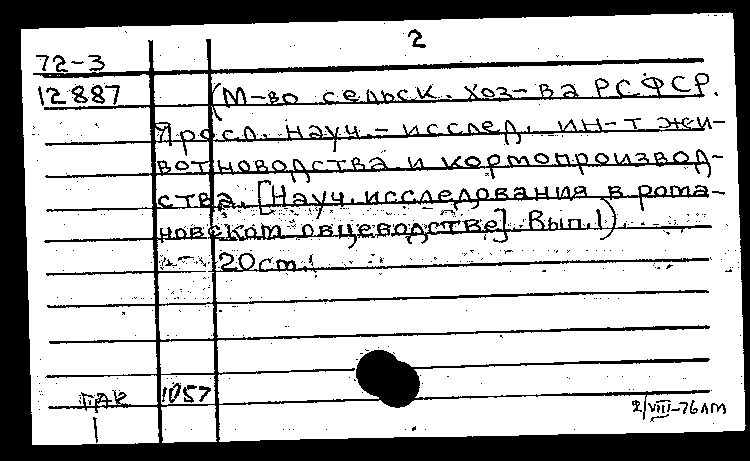 2
72-3
12887
(М-во сельск. хоз-ва РСФСР.
Яросл. науч.-исслед. ин-т жи-
вотноводства и кормопроизвод-
ства. [Науч. исследования в рома-
новском овцеводстве]. Вып. 1).
20 cm.
ГАК 1057
2/VIII-76 АМ